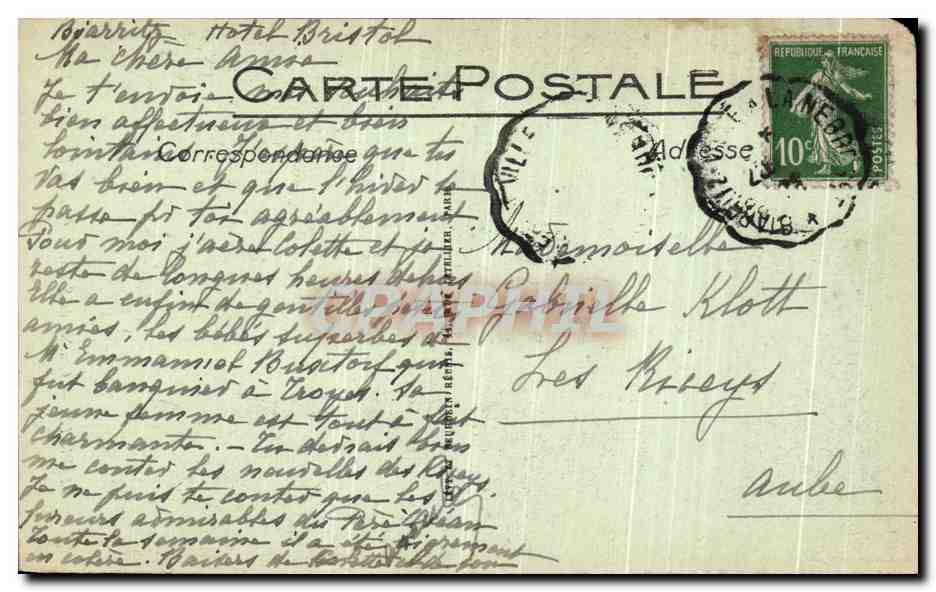 Biarritz Hotel Bristol
Ma chère amie
CARTE POSTALE
Je t'envoie mes souhaits
bien affectueux et bien
lointains. J'espère que tu
Correspondance
Adresse
vas bien et que l'hiver se
passe pr toi agréablement
Pour moi j'aère Colette et je
reste de longues heures dehors
Elle a enfin de gentilles petites
amies, les bébés superbes de
Mr Emmanuel Buxtorf qui
fut banquier à Troyes. Sa
jeune femme est tout à fait
charmante. - Tu devrais bien
me conter les nouvelles des Riceys.
Je ne puis te conter que les
fureurs admirables du Père Océan
Toute la semaine il a été
en colère. Baisers de Colette et de
Mademoiselle
Gabrielle Klott
Les Riceys
Aube
REPUBLIQUE FRANÇAISE
10c
POSTES
VILLE
CPARAMA